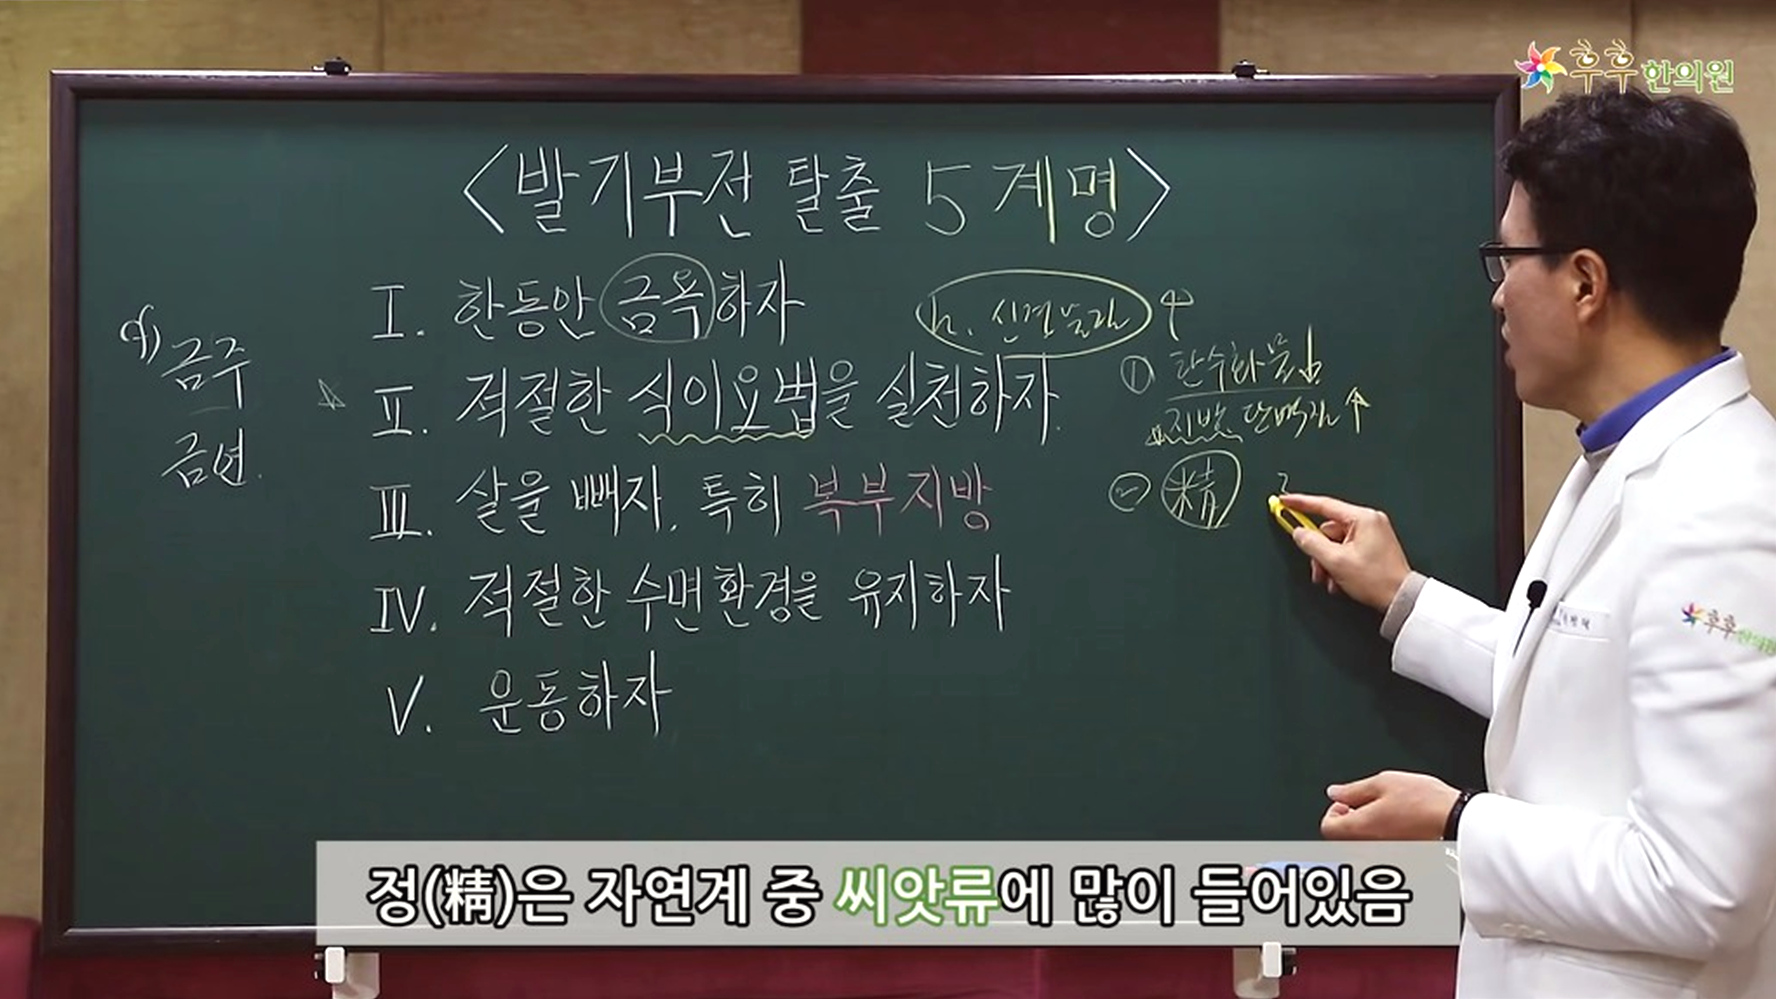 후후한의원
<발기부전 탈출 5계명>
I. 한동안 금욕하자
II. 적절한 식이요법을 실천하자.
III. 살을 빼자, 특히 복부지방
IV. 적절한 수면환경을 유지하자
V. 운동하자
금주
금연.
h. 신경물질 ↑
① 탄수화물↓
지방, 단백질↑
② 精
후후한의원
정(精)은 자연계 중 씨앗류에 많이 들어있음